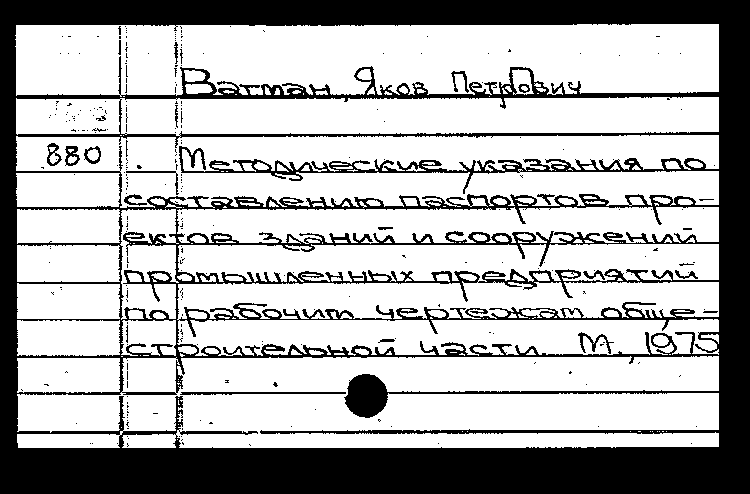 Ватман, Яков Петрович
880 . Методические указания по
составлению паспортов про-
ектов зданий и сооружений
промышленных предприятий
по рабочим чертежам обще-
строительной части. М., 1975